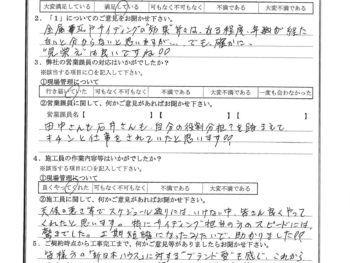 大変満足している 満足している 可もなく不可もなく 不満である 大変不満である
2.「1」についてのご意見をお聞かせ下さい。
金属瓦やサイディングの効果等は、ある程度、年数が経た
ないと分からないと思いますが…。でも、確かに、
"見栄え"は良いですね!!
3. 弊社の営業課員の対応はいかがでしたか?
※該当する項目に○を記入して下さい。
①現場管理について
行き届いていた 可もなく不可もなく 不満である 大変不満である 一度も会わなかった
②営業課員に関して、何かご意見があればお聞かせ下さい。
営業課員名【 】 営業課員名【 】
田中さんも石井さんも、自分の役割分担を踏まえて
キチンと仕事をされていたと思います!!
4. 施工員の作業内容等はいかがでしたか?
※該当する項目に○を記入して下さい。
①現場管理について
良くやってくれた 可もなく不可もなく 不満である 大変不満である
②施工員に関して、何かご意見があればお聞かせ下さい。
天候の悪さ等でスケジュール通りには、いけない中、皆さん良くやって
くれたと思います。特にサイディング担当の方のスピードには、
驚きでした。工期短縮になったみたいで、助かりました!!
5. ご契約時点から工事完工まで、何かご意見等がありましたらお聞かせ下さい。
皆様方の「新日本ハウス」に対する"ブランド愛"を感じ、これから